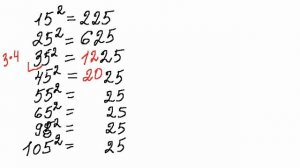 15² = 225
25² = 625
3·4 35² = 1225
45² = 2025
55² = 25
65² = 25
25
105² = 25